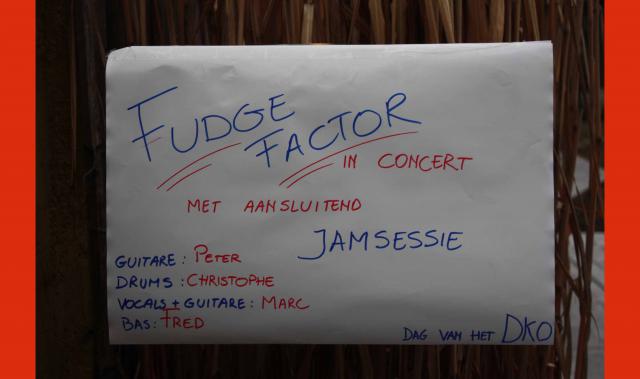 FUDGE
FACTOR
IN CONCERT
MET AANSLUITEND
JAMSESSIE
GUITARE: PETER
DRUMS: CHRISTOPHE
VOCALS + GUITARE: MARC
BAS: FRED
DAG VAN HET DKO